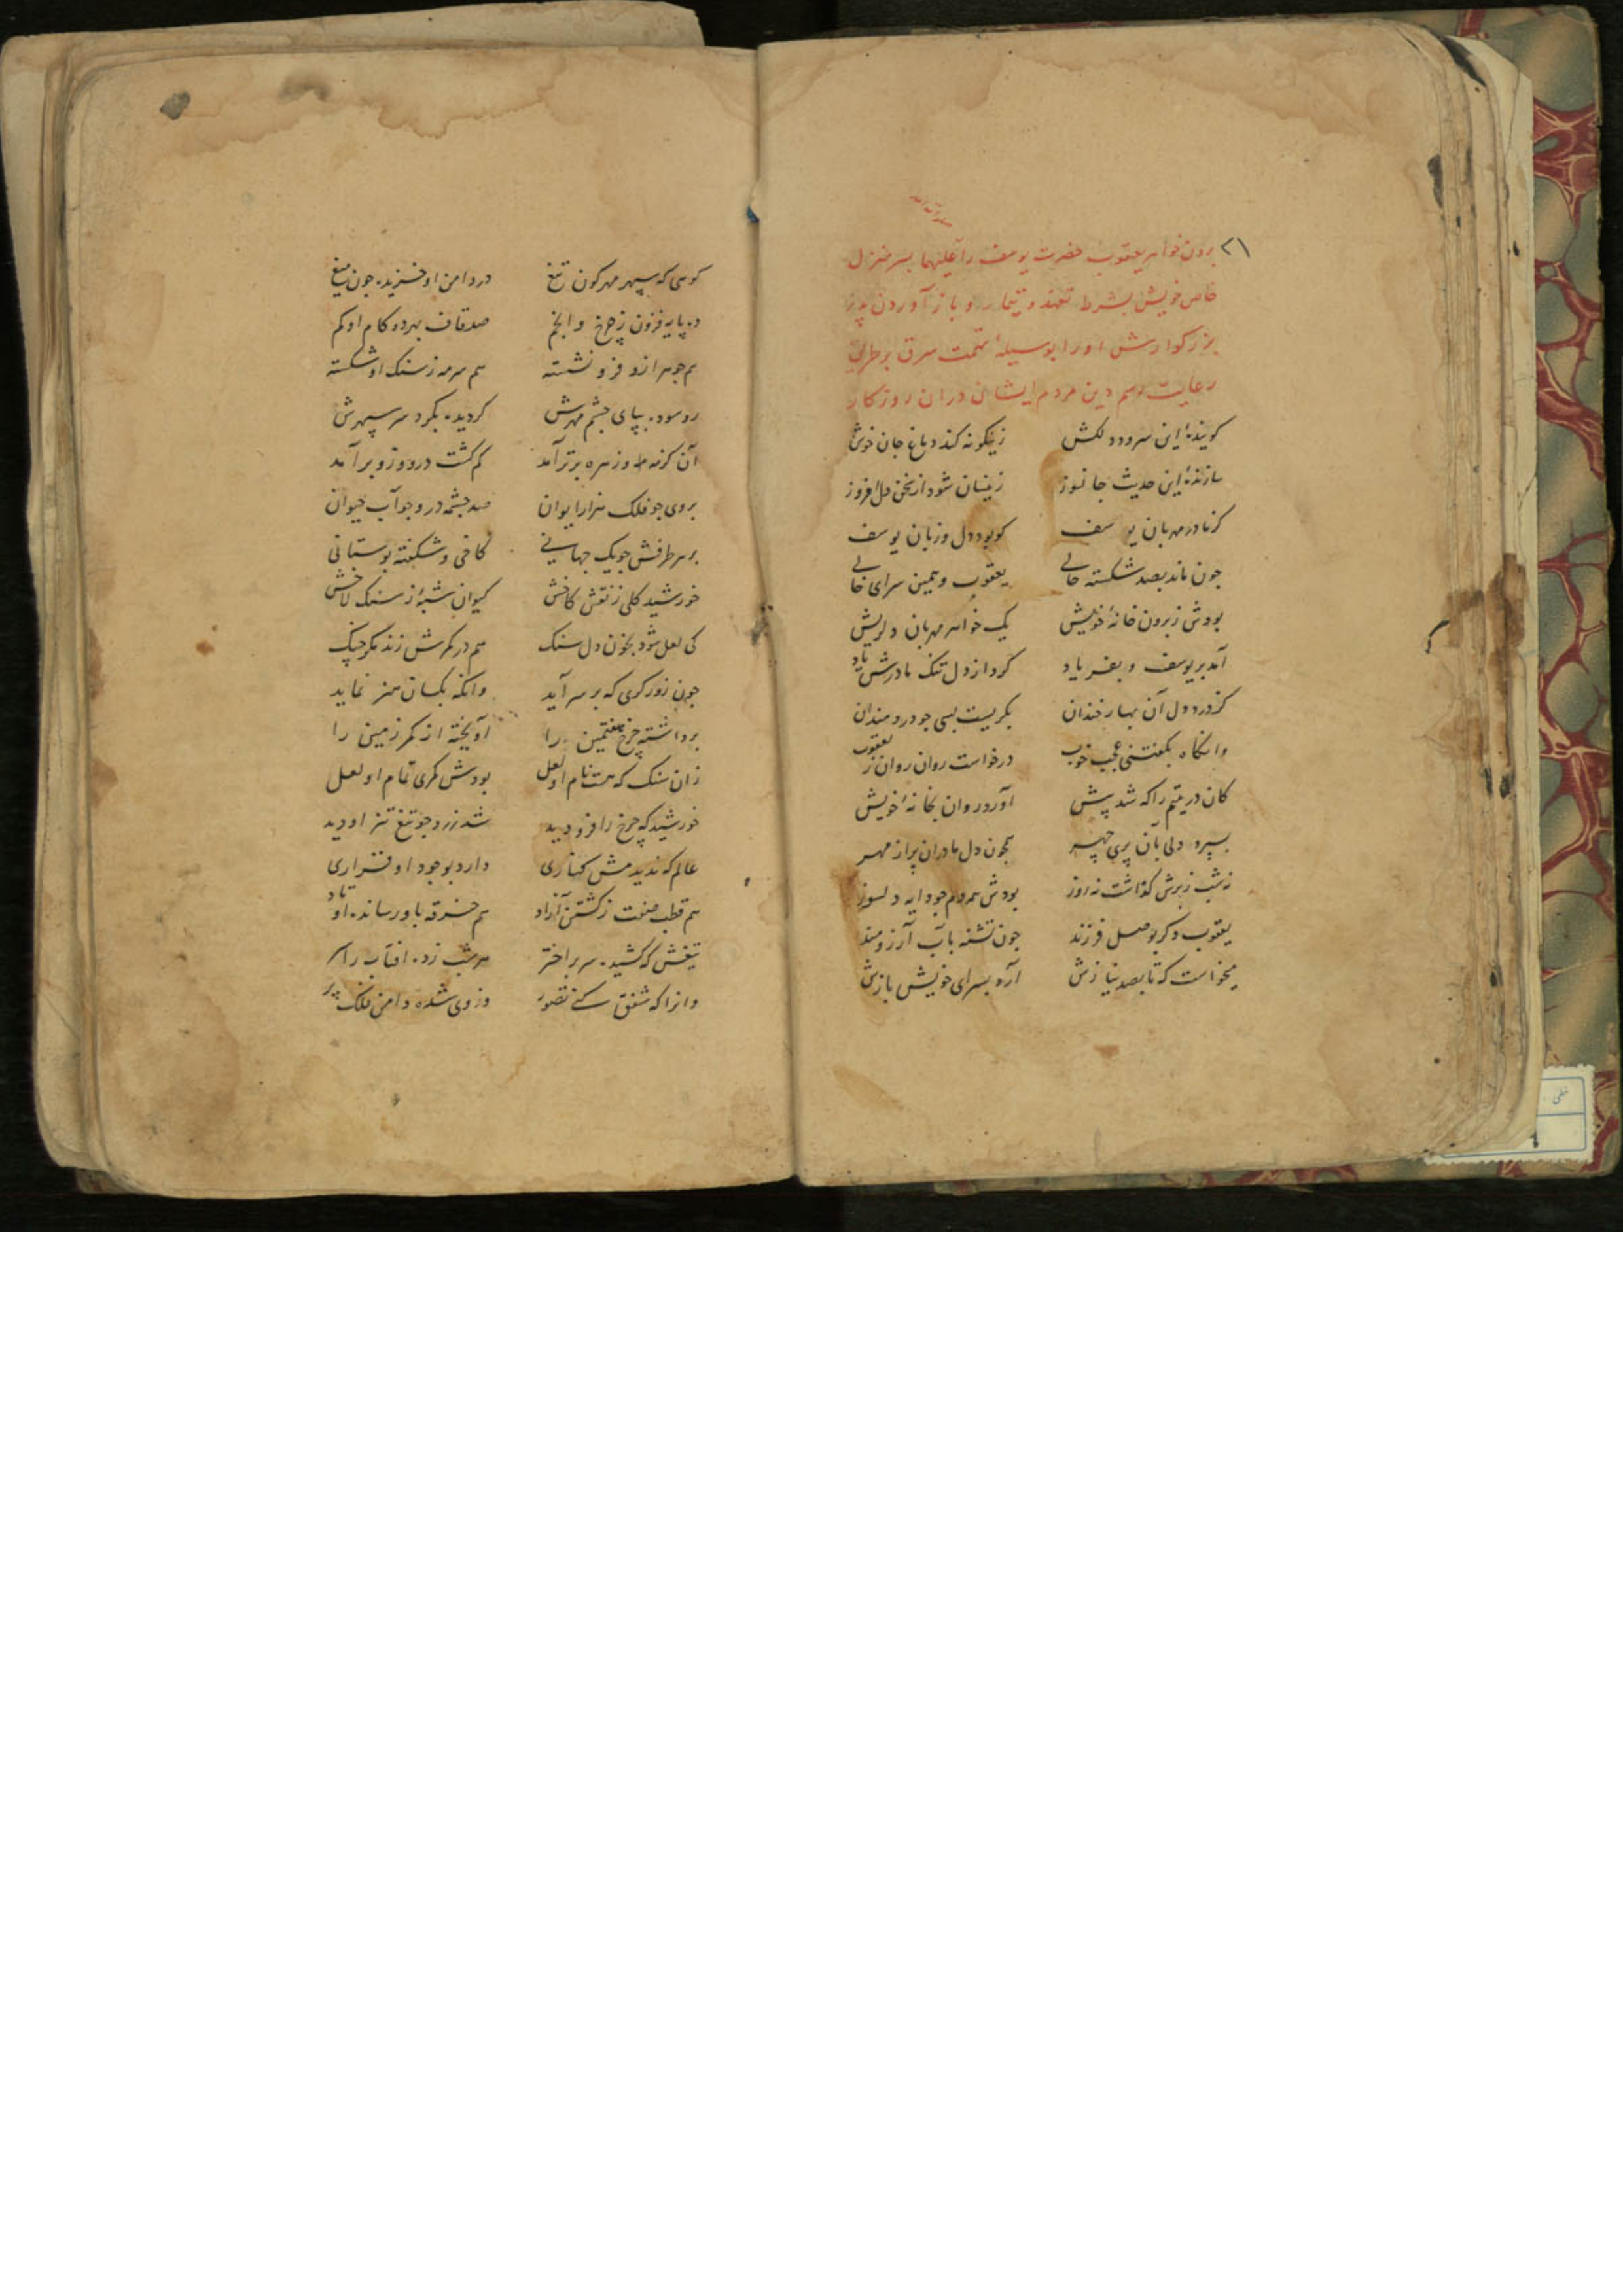 ۲۱ بردن خواهر یعقوب حضرت یوسف را علیهما بسر منزل
خاص خویش بشرط تعهد و تیمار او و باز آوردن پدر
بزرگوارش اورا بوسیلهٔ تهمت سرق بر طریق
رعایت رسم دین مردم ایشان دران روزکار
کویندهٔ این سرود دلکش زینکونه کند دماغ جان خوش
سازندهٔ این حدیث جانسوز زینسان شود از سخن دل افروز
کز مادر مهربان یوسف کو بود دل و زبان یوسف
چون ماند بصد شکسته حالی یعقوب و همین سرای خالی
بودش ز برون خانهٔ خویش یک خواهر مهربان دلریش
آمد بر یوسف و بفریاد کرد از دل تنک مادرش یاد
کز درد دل آن بهار خندان بکریست بسی جو دردمندان
وانکاه بکفتنی عجب خوب درخواست روان روان ز یعقوب
کان در یتیم را که شد پیش آورد روان بخانهٔ خویش
بسپرد دلی بان پری چهر همچون دل مادران پر از مهر
نه شب ز برش کذاشت نه روز بودش همه دم جو دایه دلسوز
یعقوب دکر بوصل فرزند جون تشنه بآب آرزومند
میخواست که تا بصد نیازش آرد بسرای خویش بازش
کوهی که سپهر مهرکون تیغ در دامن او خزیده جون میغ
ده پایه فزون ز چرخ و انجم صد قاف بهر دو کام او کم
هم جوهر ازو فرو نشسته هم سرمه ز سنک او شکسته
رو سوده بپای چشم مهرش کردیده بکرد سر سپهرش
آن کز مه و زهره برتر آمد کم کشت درو و زو برآمد
بروی جو فلک هزار ایوان صد چشمه درو جو آب حیوان
بر هر طرفش جو یک جهانی کاخی و شکفته بوستانی
خورشید کلی ز نقش کاخش کیوان شبهٔ ز سنک لاخش
کی لعل شود بخون دل سنک هم در کمرش زند مکر جنک
جون زور کری که بر سر آید وانکه بکسان هنر نماید
برداشته چرخ هفتمین را آویخته از کمر زمین را
زان سنک که هست نام او لعل بودش کمری تمام او لعل
خورشید که چرخ را فزو دید شد زرد جو تیغ تیز او دید
عالم که ندید مثل کهساری دارد بوجود او قراری
هم قطب صفت ز کشتن آزاد هم خرقه باو رسانده اوتاد
تیغش که کشیده سر بر اختر هر شب زده افتاب را سر
وانرا که شفق کنی تصور وز وی شده دامن فلک پر